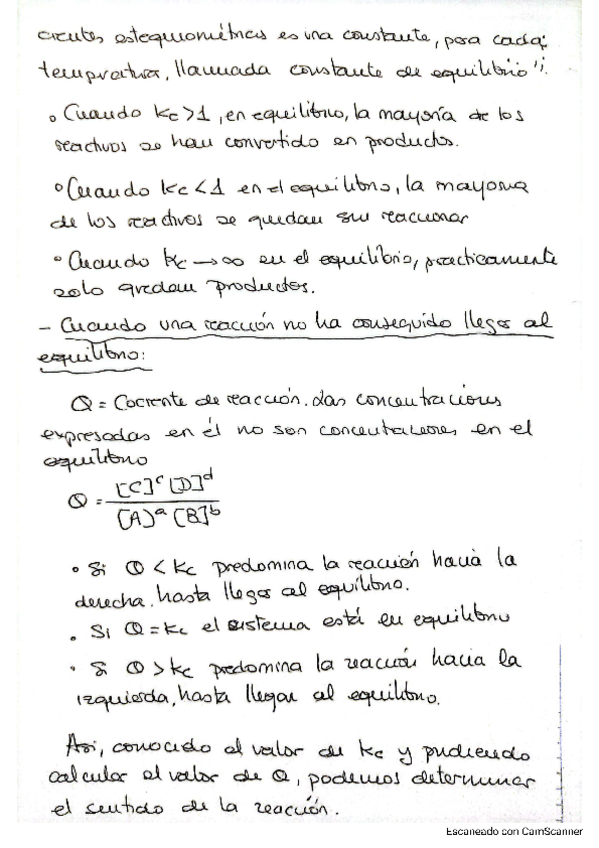 cientes estequiométricos es una constante, para cada
temperatura, llamada constante de equilibrio";
• Cuando Kc > 1, en equilibrio, la mayoría de los
reactivos se han convertido en productos.
• Cuando Kc < 1 en el equilibrio, la mayoria
de los reactivos se quedan sin reaccionar
• Cuando Kc → ∞ en el equilibrio, practicamente
solo quedan productos.
- Cuando una reacción no ha conseguido llegar al
equilibrio:
Q = Cociente de reacción. Las concentraciones
expresadas en él no son concentraciones en el
equilibrio
Q = [C]^c [D]^d / [A]^a [B]^b
• Si Q < Kc predomina la reacción hacia la
derecha, hasta llegar al equilibrio.
• Si Q = Kc el sistema está en equilibrio
• Si Q > Kc predomina la reacción hacia la
izquierda, hasta llegar al equilibrio.
Asi, conocido el valor de Kc y pudiendo
calcular el valor de Q, podemos determinar
el sentido de la reacción.
Escaneado con CamScanner